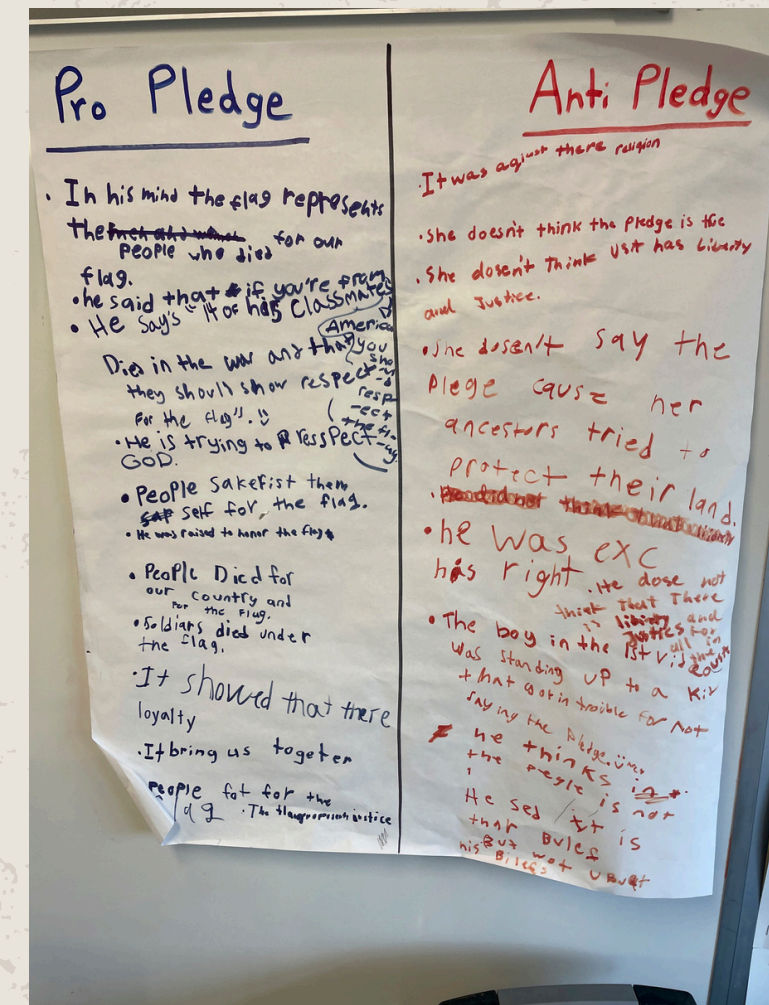 Pro Pledge
. In his mind the flag represents
the
PEOPLE who died for our
flag.
• he said that if you're from
America
you
shou
-d
resp
-ect
the fl-
ag
• He say's "14 of his classmates
Died in the war and that
they should show respect
For the flag".
• He is trying to Resspect
GOD.
• People sakefist them
self for the flag.
• He was raised to honor the flag
• People Died for
our country and
For the Flag.
• Soldiars died under
the flag.
• It showed that there
loyalty
. It bring us together
People fot for the
flag
• The flag justice
Anti Pledge
. It was agiust there religion
• She doesn't think the Pledge is true
. She dosen't Think USA has Liberty
and Justice.
• She dosen't say the
Plege cause her
ancestors tried to
protect their land.
• he was exc
his right
. He dose not
think that There
is liberty and
Justics for
all in
the
Count
• The boy in the 1st vid
was standing up to a kid
that got in troible for not
saying the Pledge.
he thinks in
the pegle is not
He sed it is
thar Bulef
But not
his Bilefs